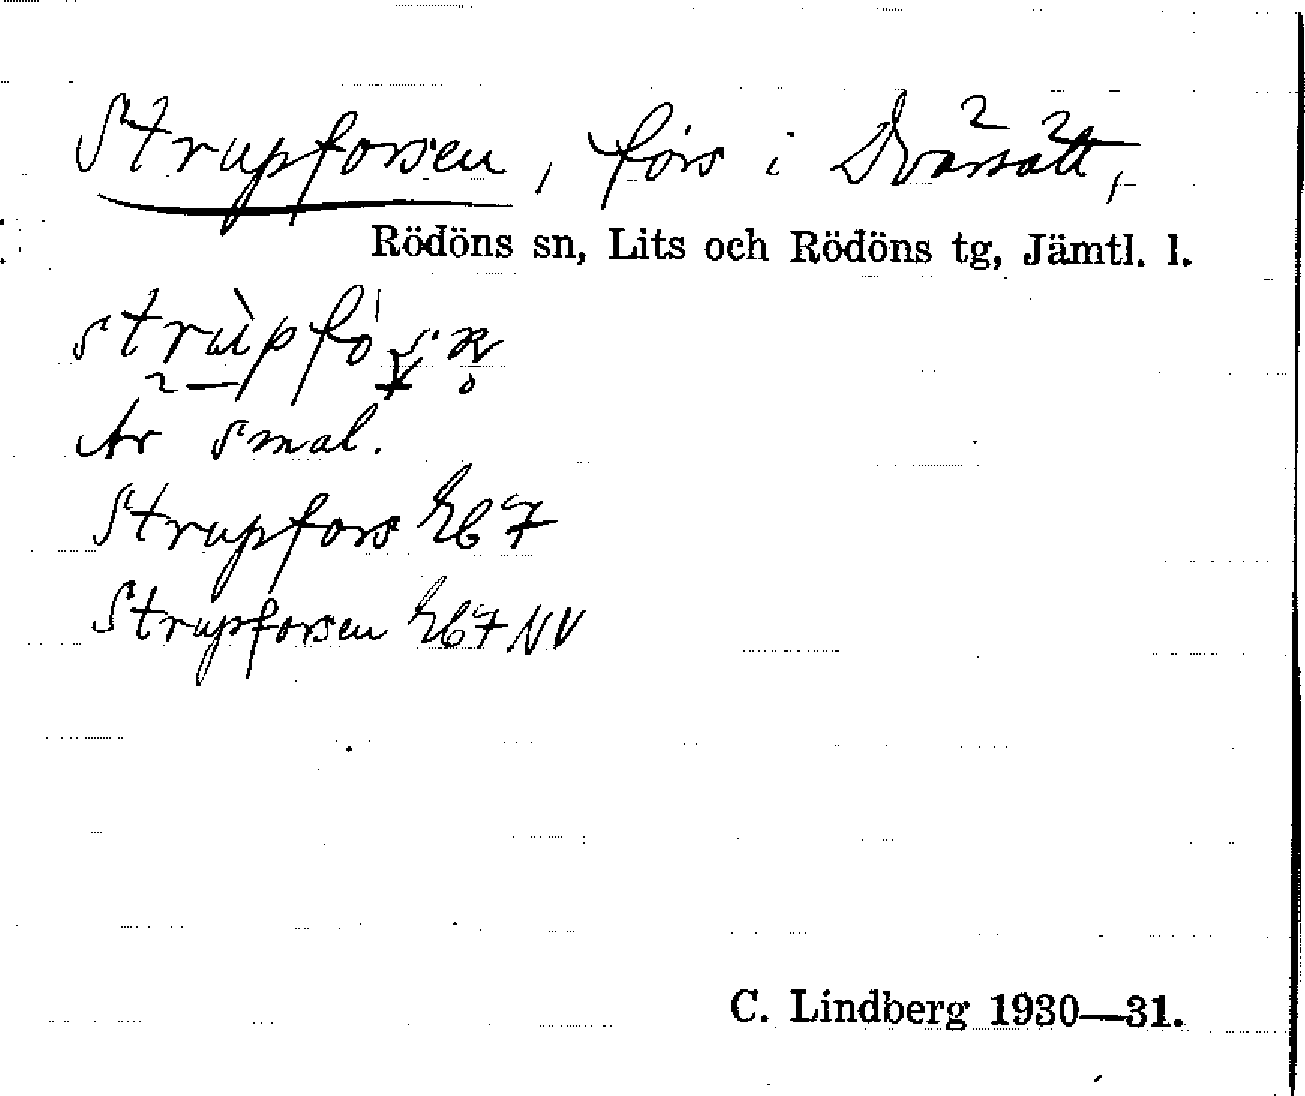 Strupforsen, fors i Dvärsätt,
Rödöns sn, Lits och Rödöns tg, Jämtl. l.
Är smal.
Strupfors Eb 7
Strupforsen Eb 7 NV
C. Lindberg 1930—31.